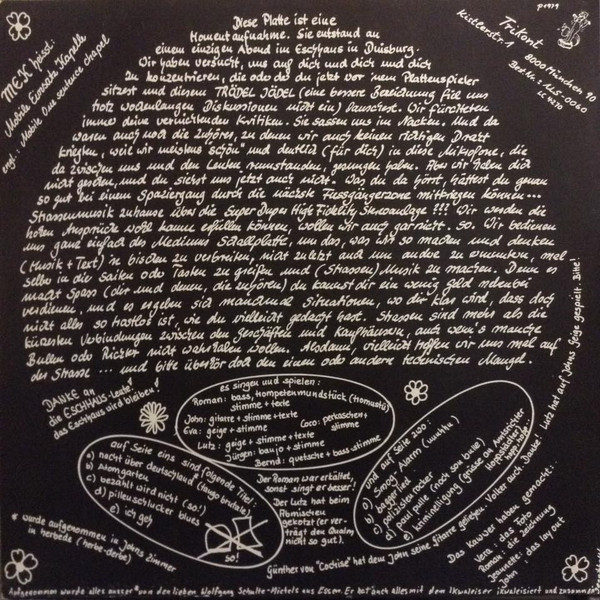 P 1979
Trikont
Kistlerstr. 1
8000 München 90
Best.Nr.: US-0060
LC 4270
MEK heisst:
Mobile Einsatz Kapelle
engl.: Mobile One sentence chapel
Diese Platte ist eine
Momentaufnahme. Sie entstand an
einem einzigen Abend im Eschhaus in Duisburg.
Wir haben versucht, uns auf dich und dich und dich
zu konzentrieren, die oder der du jetzt vor 'nem Plattenspieler
sitzest und diesem TRÖDEL JÖDEL (eine bessere Bezeichnung fiel uns
trotz wochenlangen Diskussionen nicht ein) lauschest. Wir fürchteten
immer deine vernichtenden Kritiken. Sie sassen uns im Nacken. Und da
waren auch noch die Zuhörer, zu denen wir auch keinen richtigen Draht
kriegten, weil wir meistens "schön" und deutlich (für dich) in diese Mikrofone, die
da zwischen uns und den Leuten rumstanden, gesungen haben. Aber wir haben dich
nicht gesehen, und du siehst uns jetzt auch nicht. Was du da hörst, hättest du genau
so gut bei einem Spaziergang durch die nächste Fussgängerzone mitkriegen können...
Strassenmusik zuhause über die Super Duper High Fidelity Stereoanlage!!! Wir werden die
hohen Ansprüche wohl kaum erfüllen können, wollen wir auch garnicht. So. Wir bedienen
uns ganz einfach des Mediums Schallplatte, um das, was wir so machen und denken
(Musik + Text) 'n bisschen zu verbreiten, nicht zuletzt auch um andere zu ermuntern, mal
selbst in die Saiten oder Tasten zu greifen und (Strassen) Musik zu machen. Denn es
macht Spass (dir und denen, die zuhören) du kannst dir ein wenig Geld nebenbei
verdienen, und es ergeben sich manchmal Situationen, wo dir klar wird, dass doch
nicht alles so trostlos ist, wie du vielleicht gedacht hast. Strassen sind mehr als die
kürzesten Verbindungen zwischen den Geschäften und Kaufhäusern, auch wenn's manche
Bullen oder Richter nicht wahrhaben wollen. Alsdann, vielleicht treffen wir uns mal auf
der Strasse ... und bitte überhör doch den einen oder andern technischen Mangel.
DANKE an
die ESCHHAUS-Leute!
das Eschhaus wird bleiben!
es singen und spielen:
Roman: bass, trompetenmundstück
stimme + texte
John: gitarre + stimme + texte
Eva: geige + stimme
Coco: perkaschen + stimme
Lutz: geige + stimme + texte
Jürgen: banjo + stimme
Bernd: quetsche + bass stimme
auf Seite eins sind folgende Titel:
a) nachts über deutschland (tango brutale)
b) atomgarten
c) bezahlt wird nicht (so!)
d) pillenschlucker blues
e) ich geh
so!
Der Roman war erkältet,
sonst singt er besser.
Der Lutz hat beim
Römischen
gekotzt (er ver-
trägt den Qualm
nicht so gut).
und auf Seite zwo:
a) Smog Alarm (uuuhhu)
b) bagger lied
c) polizisten rocker
d) paul pulle (noch son buhs)
e) kriminelligung
* wurde aufgenommen in Johns Zimmer
in herbede (herbe-derbe)
Günther von "Cochise" hat dem John seine Gitarre geliehen. Volker auch. Danke! Lutz hat auf Johns Geige gespielt. Bitte!
Das Kawwer haben gemacht:
Vera: das Foto
Roman: die Zeichnung
Jeannette: das lay out
John:
Aufgenommen wurde alles ausser * von den lieben Wolfgang Schulte-Michels aus Essen. Er hat auch alles mit dem Ikwaleiser ikwaleisiert und zusammen